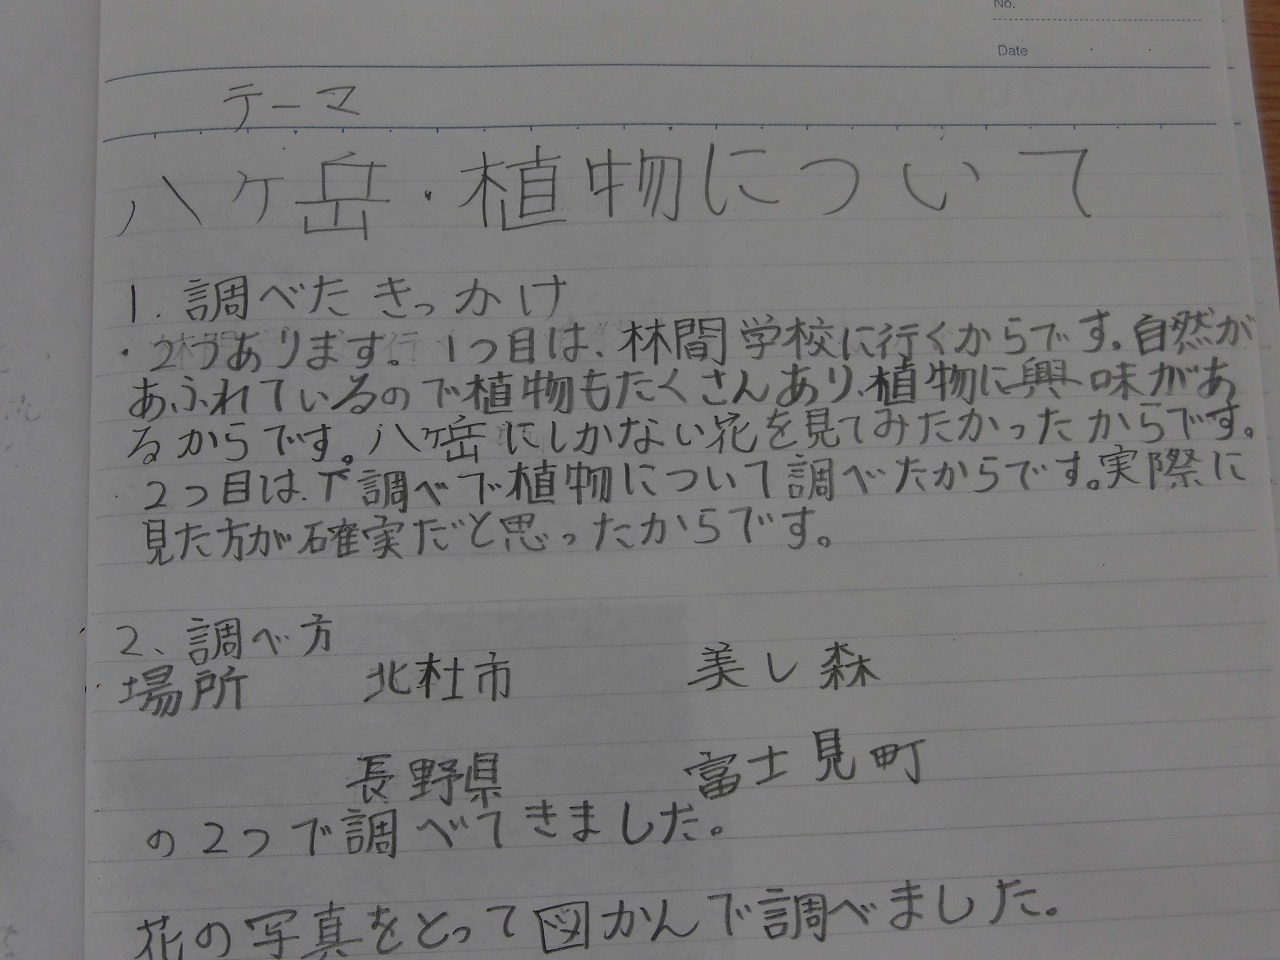 No.
Date
テーマ
八ヶ岳・植物について
1. 調べたきっかけ
・2つあります。1つ目は、林間学校に行くからです。自然が
あふれているので植物もたくさんあり、植物に興味があ
るからです。八ヶ岳にしかない花を見てみたかったからです。
2つ目は、下調べで植物について調べたからです。実際に
見た方が確実だと思ったからです。
2、調べ方
場所 北杜市 美し森
長野県 富士見町
の2つで調べてきました。
花の写真をとって図かんで調べました。